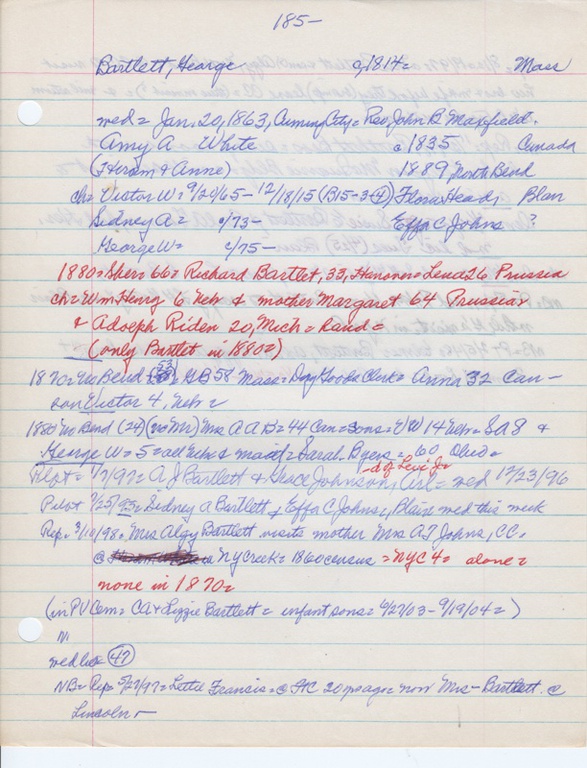 185-
Bartlett, George c, 1814= Mass
med= Jan, 20, 1863, CumingCity= Rev John B Maxfield.
Amy A White c 1835 Canada
(Hiram & Anne) 1889 North Bend
ch= Victor W= 9/20/65- 12/18/15 (B15-3-4) Flora Heard, Blair
Sidney A= c/73- Effa C Johns ?
George W= c/75-
1880= Sher= 66= Richard Bartlet, 33, Hanover= Lena 26 Prussia
ch= Wm Henry 6 Neb & mother Margaret 64 Prussia,
& Adolph Riden 20, Mich= hand=
(only Bartlet in 1880=)
1870= No Bend GB 58 Mass= Dry Goods Clerk= Anna 32 Can-
son Victor 4, Neb=
1880 No Bend (24) (no Mr) Mrs A A B= 44 Can= sons= VW 14 Neb= SA 8 &
George W= 5= all Neb & maid= Sarah Byers= 60 Ohio=
-d of Levi Jr
Pilot= 1/7/97= A J Bartlett & Grace Johnson, Arl= med 12/23/96
Pilot 7/25/95= Sidney A Bartlett & Effa C Johns, Blair med this week
Rep. 3/10/98. Mrs Algy Bartlett visits mother Mrs A J Johns, CC.
@ NYCreek= 1860 census =NYC 4= alone=
none in 1870=
(in PV Cem= CA & Lizzie Bartlett= infant sons= 4/27/03- 9/19/04=)
med lic 47
NB= Rep= 5/27/97= Lettie Francis= @ FtC 20 yrs ago= now Mrs- Bartlett @
Lincoln-